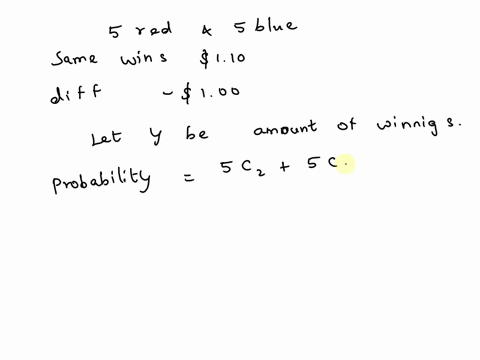 5 red & 5 blue
Same wins $1.10
diff - $1.00
Let y be amount of winnigs.
Probability = 5C₂ + 5C